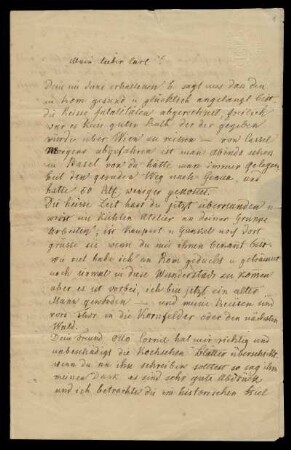 Mein lieber Carl!
Dein im Jane erlassener B. sagt uns das du
in Rom gesund u glücklich angelangt bist
die Reise fatalitäten abgerechnet, freilich
war es kein guter Rath der dir gegeben
wurde über Wien zu reisen — von Cassel
Morgens abgefahren ist man abends schon
in Basel von da hätte man immer gelegen
heit den geraden Weg nach Genua und
hätte 60 Rtl. weniger gekostet.
Die heise Zeit hast du jetzt überstanden u
wirst im kühlen Atelier an deiner Gruppe
arbeiten, ist Kaupert u Gunkel noch dort
grüsse sie wenn du mit ihnen bekant bist
wie viel habe ich an Rom gedacht u geträumt
noch einmal in diese Wunderstadt zu kommen
aber es ist vorbei, ich bin jetzt ein alter
Mann geworden — und meine Reisen sind
nur in die Kornfelder oder den nächsten
Wald.
Dein Freund Otto hat mir richtig und
unbeschädigt die Kochschen Blätter überschickt
wenn du an ihn schreiben solltest so sag ihm
meinen Dank es sind sehr gute Abdrücke
und ich betrachte die im historischen Stiel